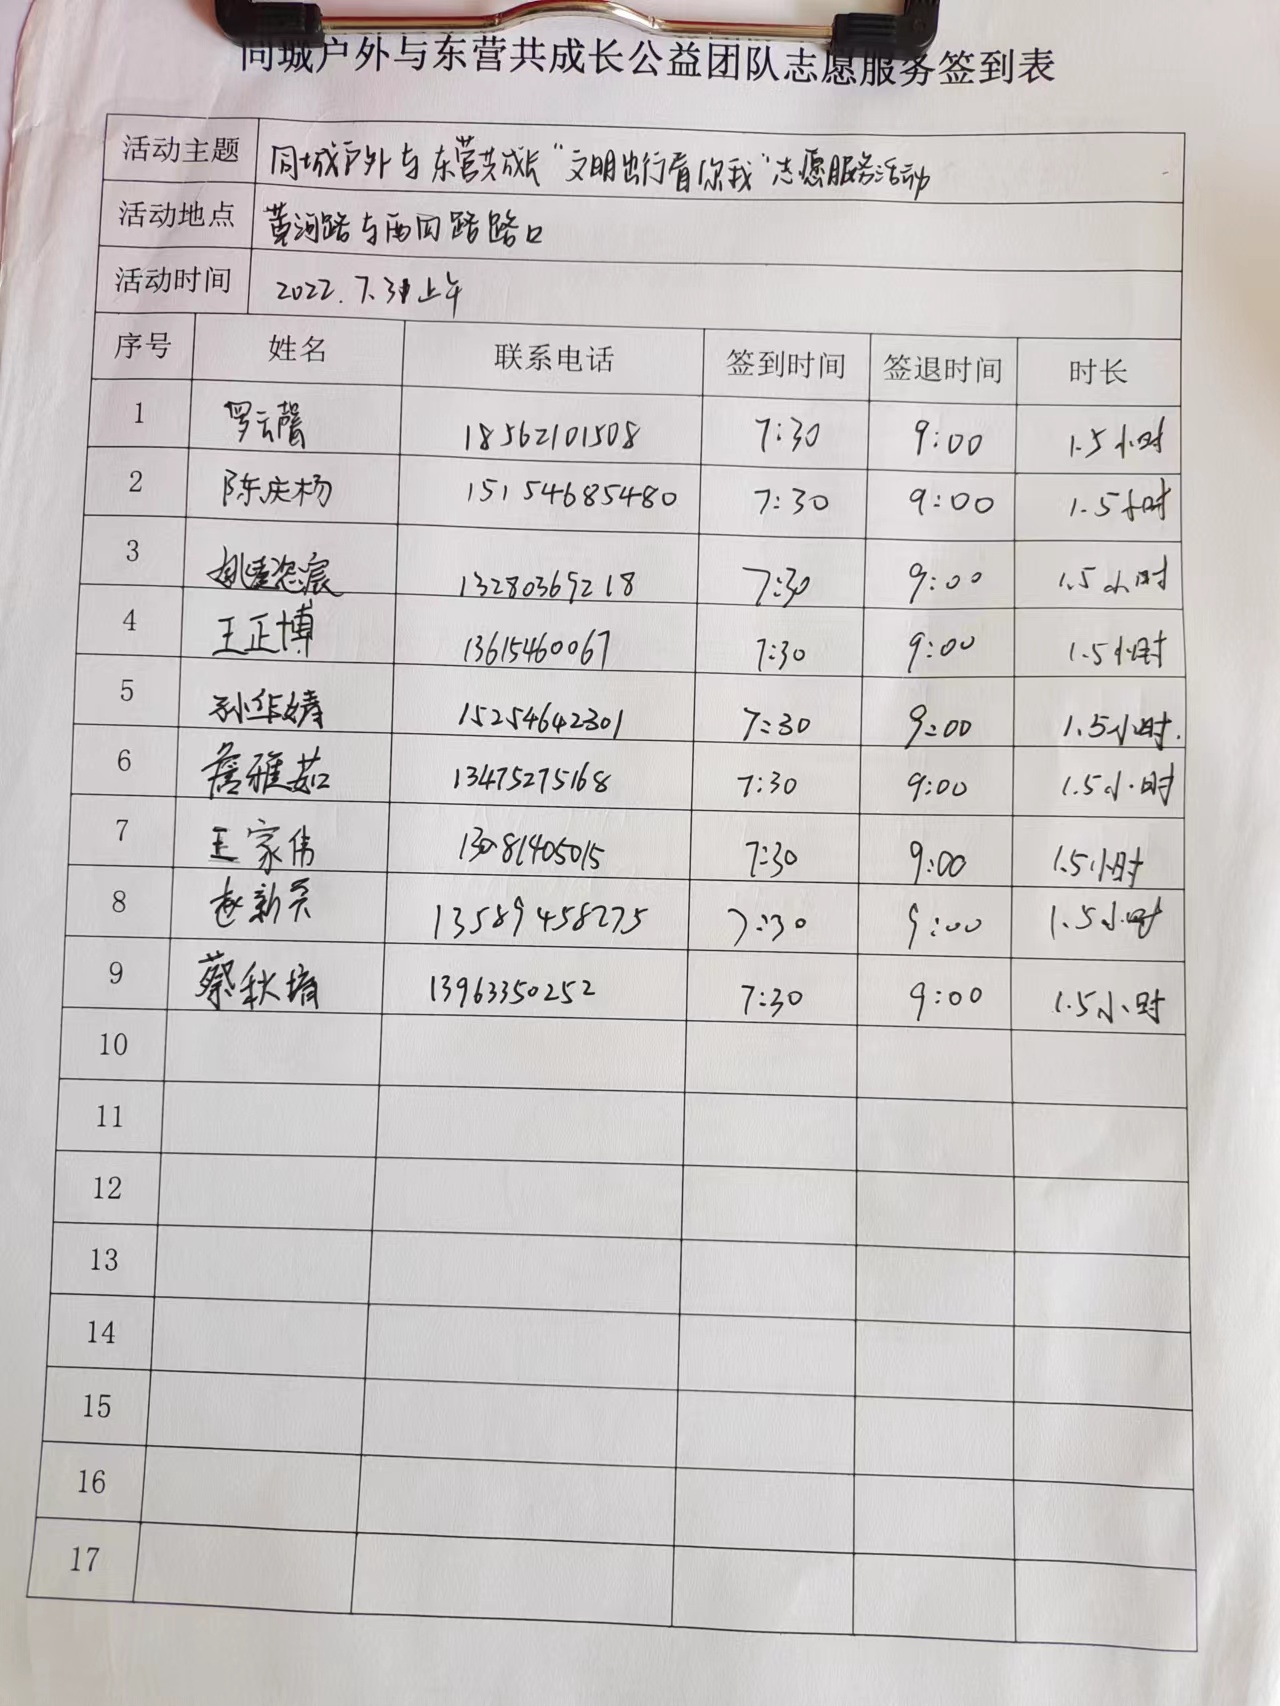 同城户外与东营共成长公益团队志愿服务签到表
活动主题 同城户外与东营共成长“文明出行看你我”志愿服务活动
活动地点 黄河路与西四路路口
活动时间 2022.7.31上午
序号 姓名 联系电话 签到时间 签退时间 时长
1 罗云馨 18562101508 7:30 9:00 1.5小时
2 陈庆杨 15154685480 7:30 9:00 1.5小时
3 姚 宸 13280369218 7:30 9:00 1.5小时
4 王正博 13615460067 7:30 9:00 1.5小时
5 孙华婧 15254642301 7:30 9:00 1.5小时.
6 詹雅茹 13475275168 7:30 9:00 1.5小时
7 王家伟 13081405015 7:30 9:00 1.5小时
8 赵新 13589458275 7:30 9:00 1.5小时
9 蔡秋 13963350252 7:30 9:00 1.5小时
10
11
12
13
14
15
16
17